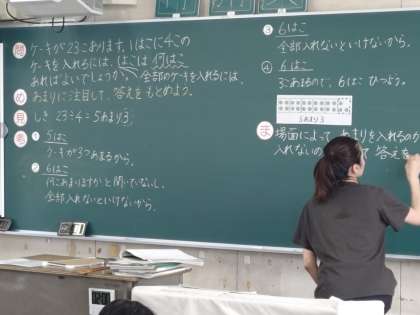 問 ケーキが23こあります。1はこに4この
ケーキを入れるには、はこは何はこ
あればよいでしょうか。全部のケーキを入れるには、
め あまりに注目して、答えをもとめよう。
見 しき 23÷4=5あまり3
考 ① 5はこ
ケーキが3つあまるから。
② 6はこ
何こあまりますかと聞いていないし、
全部入れないといけないから。
③ 6はこ
全部入れないといけないから。
④ 6はこ
3こあまるので、6はこひつよう。
5あまり3
ま 場面によって、あまりを入れるのか
入れないの
て 答えを